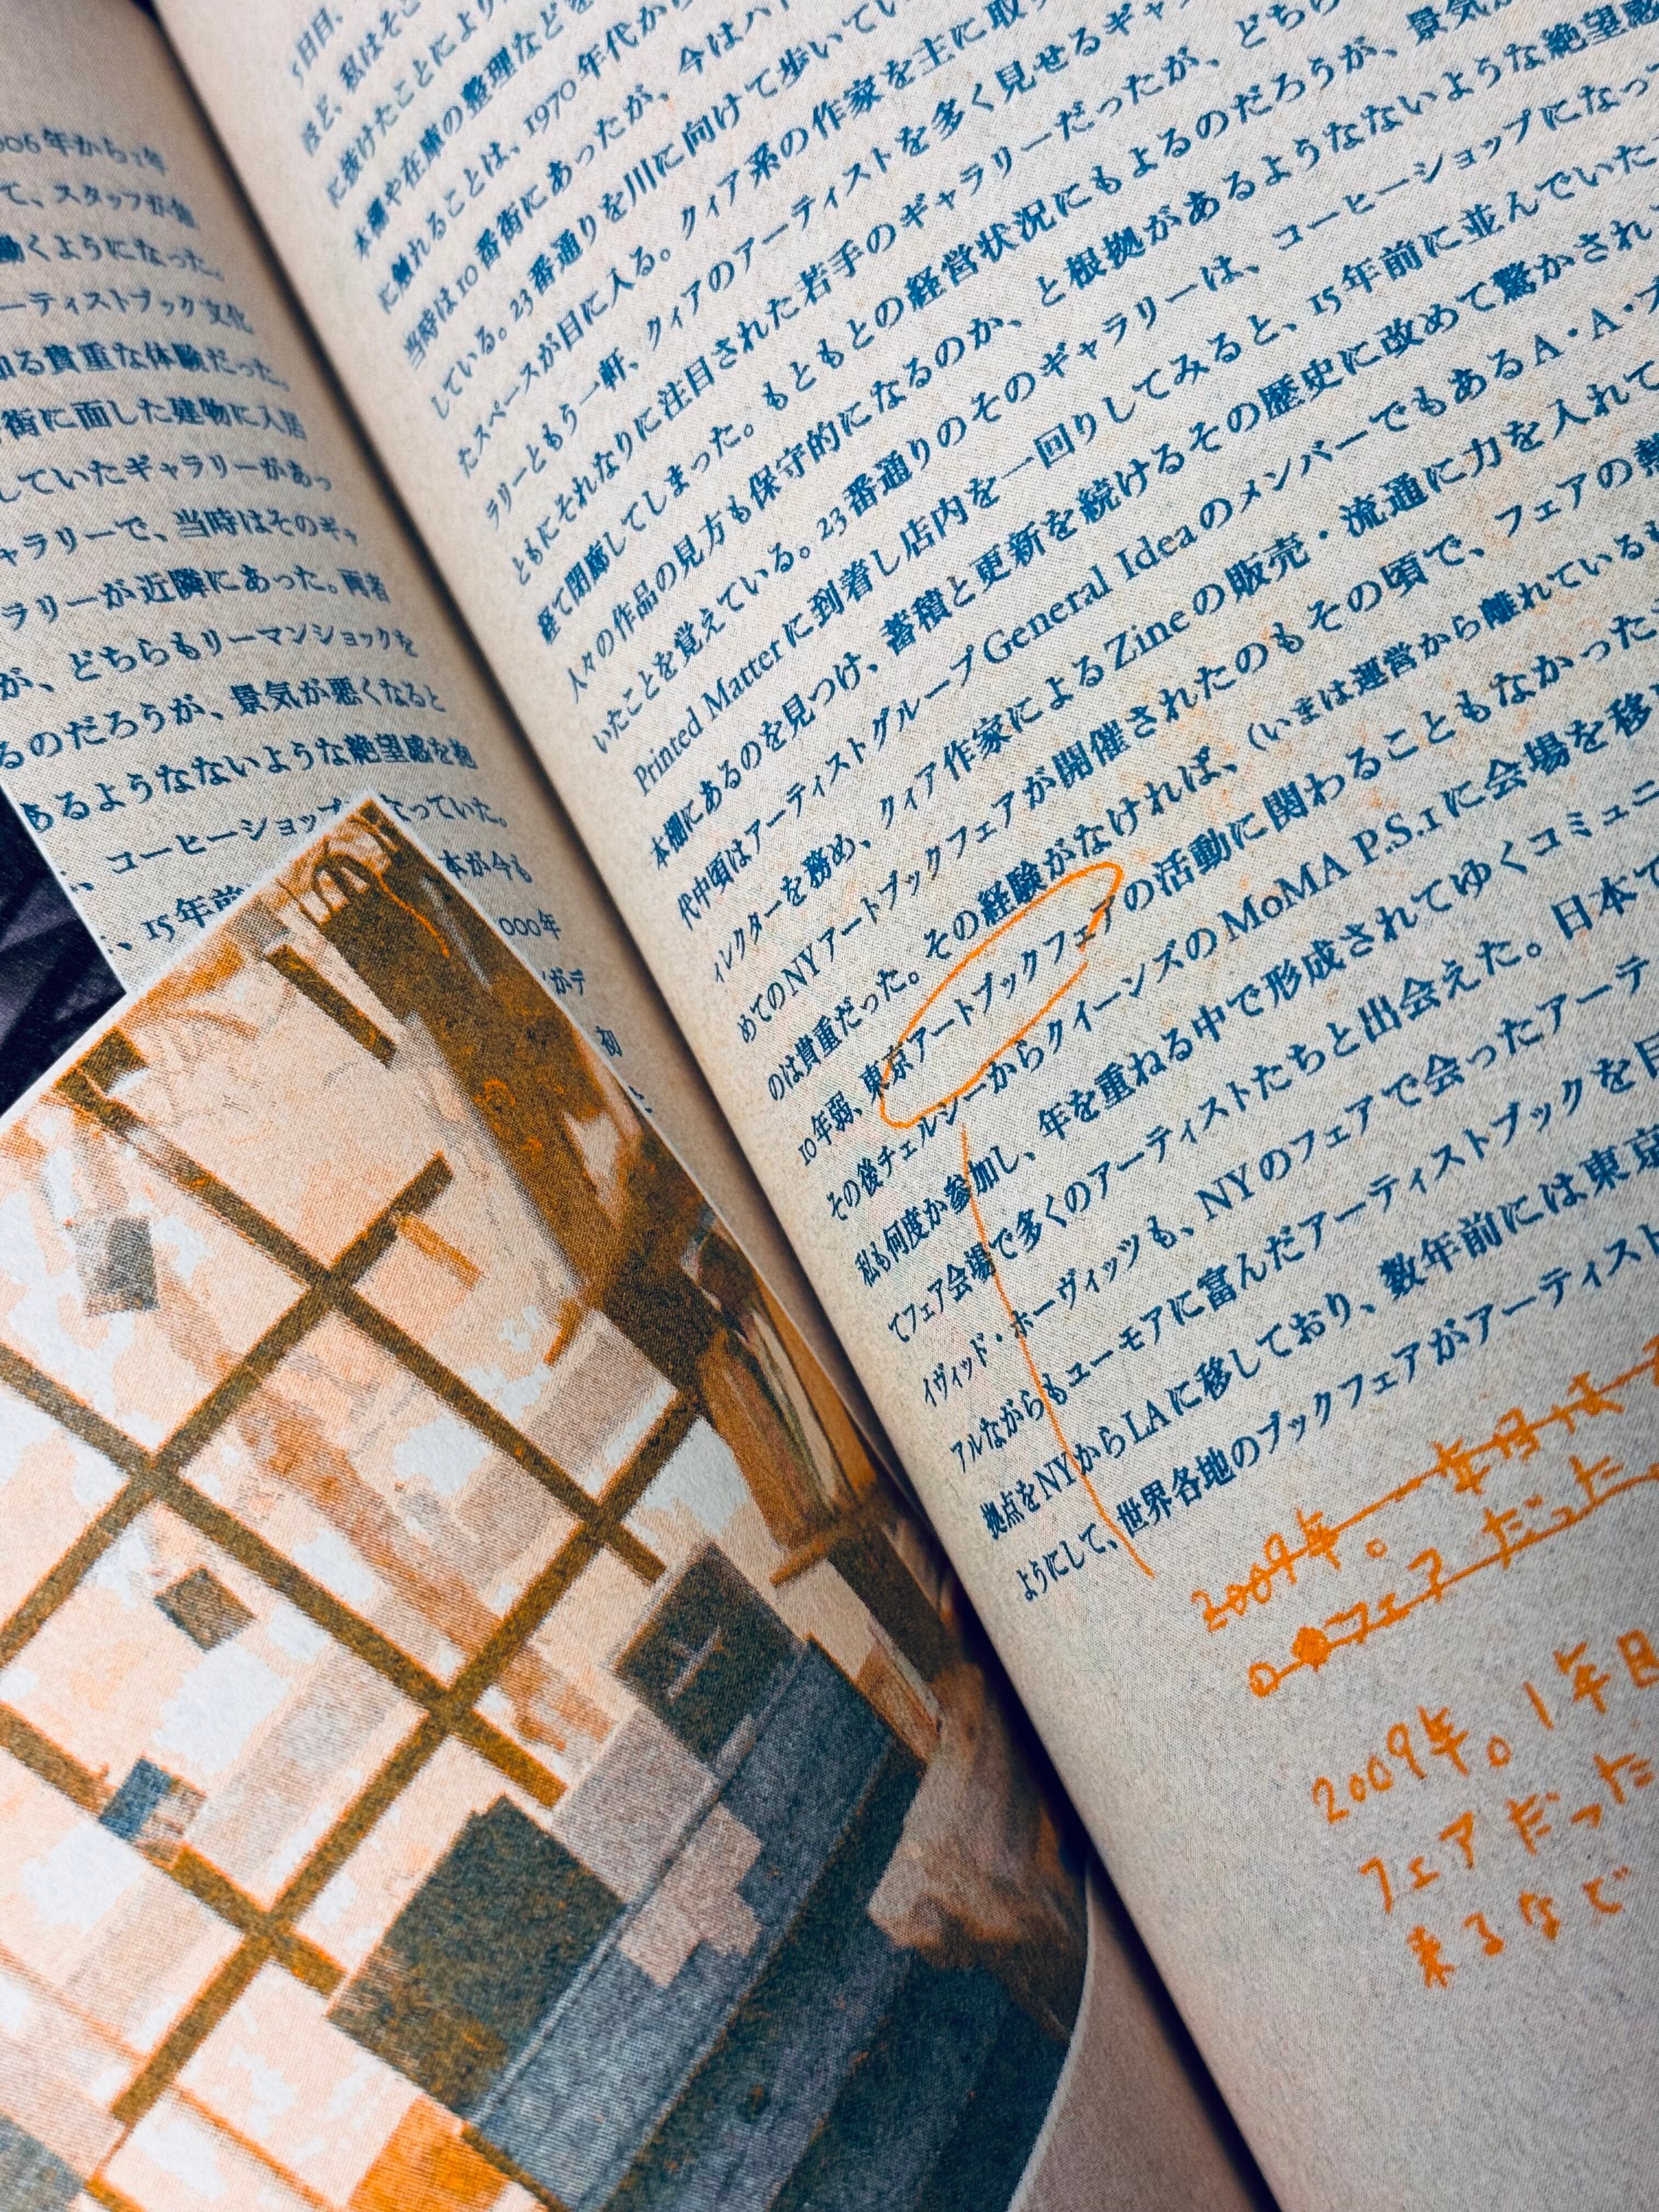 006年から1年
て、スタッフが
働くようになった。
ーティストブック文化
知る貴重な体験だった。
街に面した建物に入居
していたギャラリーがあっ
ャラリーで、当時はそのギャ
ラリーが近隣にあった。両者
が、どちらもリーマンショックを
るのだろうが、景気が悪くなると
あるようなないような絶望感を抱
、コーヒーショップ なっていた。
、15年前 本が今も
000年
がデ
初
5日目、
ほど、私はそこ
に抜けたことにより
本棚や在庫の整理などを
に触れることは、1970年代から
当時は10番街にあったが、今はハド
している。23番通りを川に向けて歩いてい
たスペースが目に入る。クィア系の作家を主に取り
ラリーともう一軒、クィアのアーティストを多く見せるギャラ
ともにそれなりに注目された若手のギャラリーだったが、どちら
経て閉廊してしまった。もともとの経営状況にもよるのだろうが、景気が
人々の作品の見方も保守的になるのか、と根拠があるようなないような絶望感
いたことを覚えている。23番通りのそのギャラリーは、コーヒーショップになって
Printed Matterに到着し店内を一回りしてみると、15年前に並んでいた
本棚にあるのを見つけ、蓄積と更新を続けるその歴史に改めて驚かされ
代中頃はアーティストグループGeneral IdeaのメンバーでもあるA・A・ブ
ィレクターを務め、クィア作家によるZineの販売・流通に力を入れて
めてのNYアートブックフェアが開催されたのもその頃で、フェアの熱
のは貴重だった。その経験がなければ、(いまは運営から離れているも
10年弱、東京アートブックフェアの活動に関わることもなかった
その後チェルシーからクイーンズのMoMA P.S.1に会場を移
私も何度か参加し、年を重ねる中で形成されてゆくコミュニ
てフェア会場で多くのアーティストたちと出会えた。日本で
イヴィッド・ホーヴィッツも、NYのフェアで会ったアーテ
アルながらもユーモアに富んだアーティストブックを
拠点をNYからLAに移しており、数年前には東京
ようにして、世界各地のブックフェアがアーティスト
2009年。
フェアだった
2009年。1年目
フェアだった
来るなど